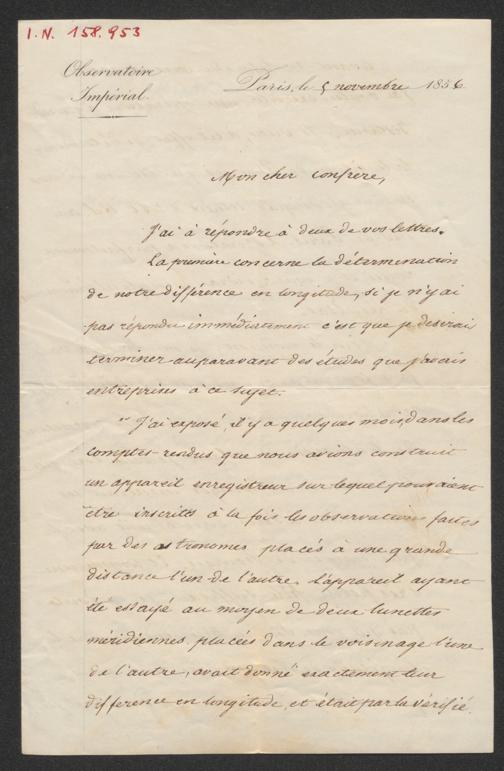 I.N. 158.953
Observatoire
Impérial.
Paris, le 5 novembre 1856
Mon cher confrère,
J'ai à répondre à deux de vos lettres.
La première concerne la détermination
de notre différence en longitude, si je n'y ai
pas répondu immédiatement c'est que je désirais
terminer auparavant des études que j'avais
entreprises à ce sujet.
J'ai exposé, il y a quelques mois, dans les
comptes-rendus que nous avions construit
un appareil enregistreur sur lequel pouvaient
être inscrites à la fois les observations faites
par des astronomes placés à une grande
distance l'un de l'autre. L'appareil ayant
été essayé au moyen de deux lunettes
méridiennes, placées dans le voisinage l'une
de l'autre, avait donné exactement leur
différence en longitude, et était par là vérifié.